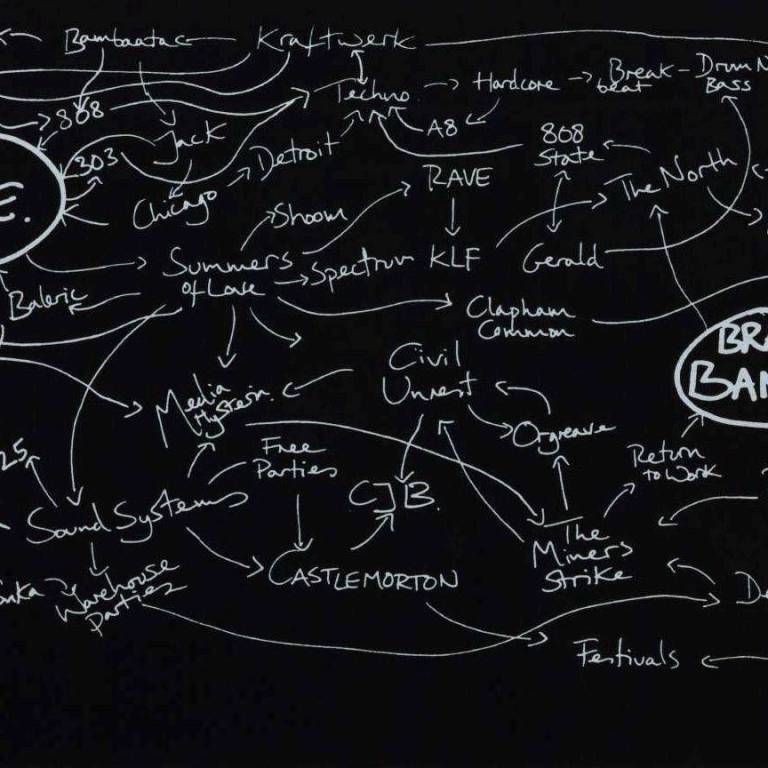 Bambaataa
Kraftwerk
Techno
Hardcore
Break
beat
Drum N
Bass
808
Jack
303
Detroit
A8
808
State
RAVE
The North
E.
Chicago
Shoom
Summers
of Love
Spectrum
KLF
Gerald
Baleric
Clapham
Common
BRA
BAN
Civil
Unrest
Media
Hysteria
Orgreave
Free
Parties
Return
to Work
25
CJB.
Sound Systems
The
Miners
Strike
CASTLEMORTON
Warehouse
Parties
nka
De
Festivals